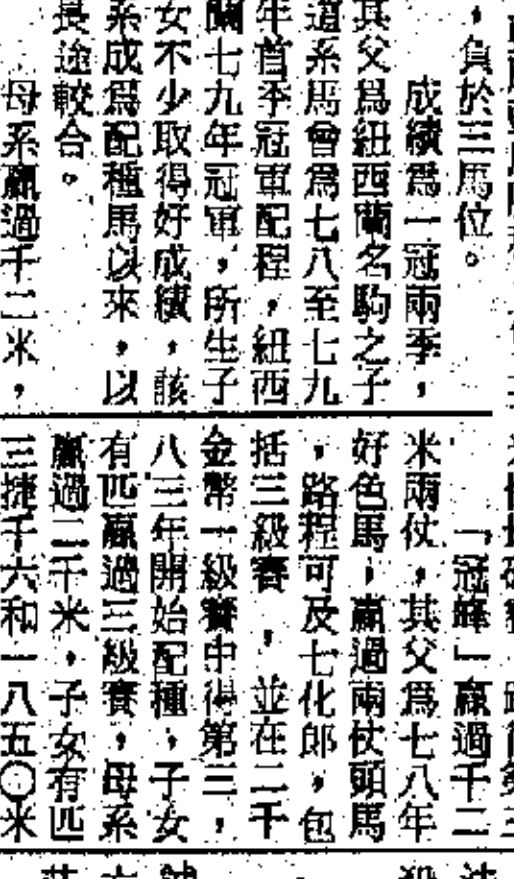 ，負於三馬位。
成績爲一冠兩季，
其父爲紐西蘭名駒之子
道系馬曾爲七八至七九
年首季冠軍配程，紐西
蘭七九年冠軍，所生子
女不少取得好成績，該
系成爲配種馬以來，以
長途較合。
母系贏過千二米，
「冠峰」贏過千二
米兩仗，其父爲七八年
好色馬，贏過兩仗頭馬
，路程可及七化郎，包
括三級賽，並在二千
金幣一級賽中得第三，
八三年開始配種，子女
有匹贏過三級賽，母系
贏過二千米，子女有匹
三捷千六和一八五〇米